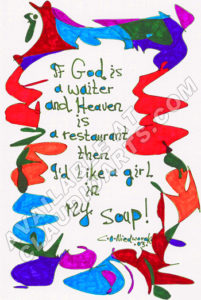 If God is
a waiter
and Heaven
is
a restaurant
then
I'd Like a girl
in
My Soup!
AVAILABLE AT